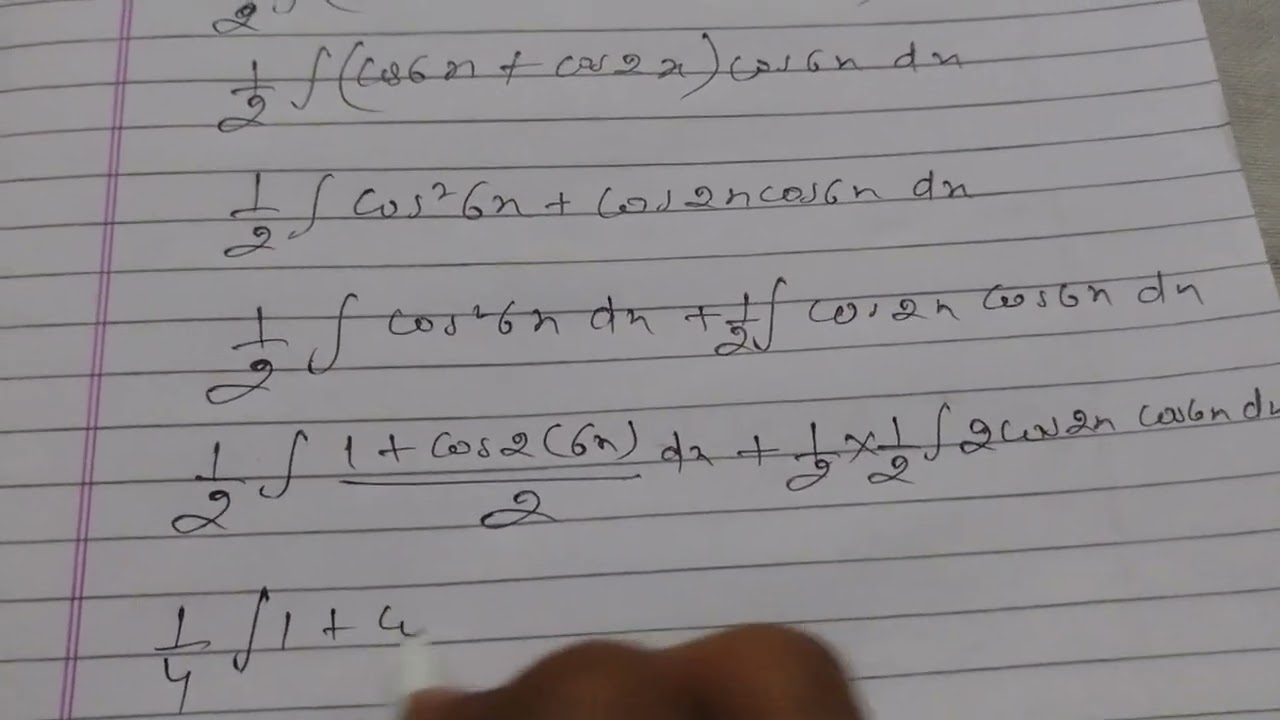 2
1/2 ∫(cos6x + cos2x)cos6x dx
1/2 ∫ cos²6x + cos2xcos6x dx
1/2 ∫ cos²6x dx + 1/2 ∫ cos2x cos6x dx
1/2 ∫ (1 + cos2(6x))/2 dx + 1/2 × 1/2 ∫ 2cos2x cos6x dx
1/4 ∫ 1 +